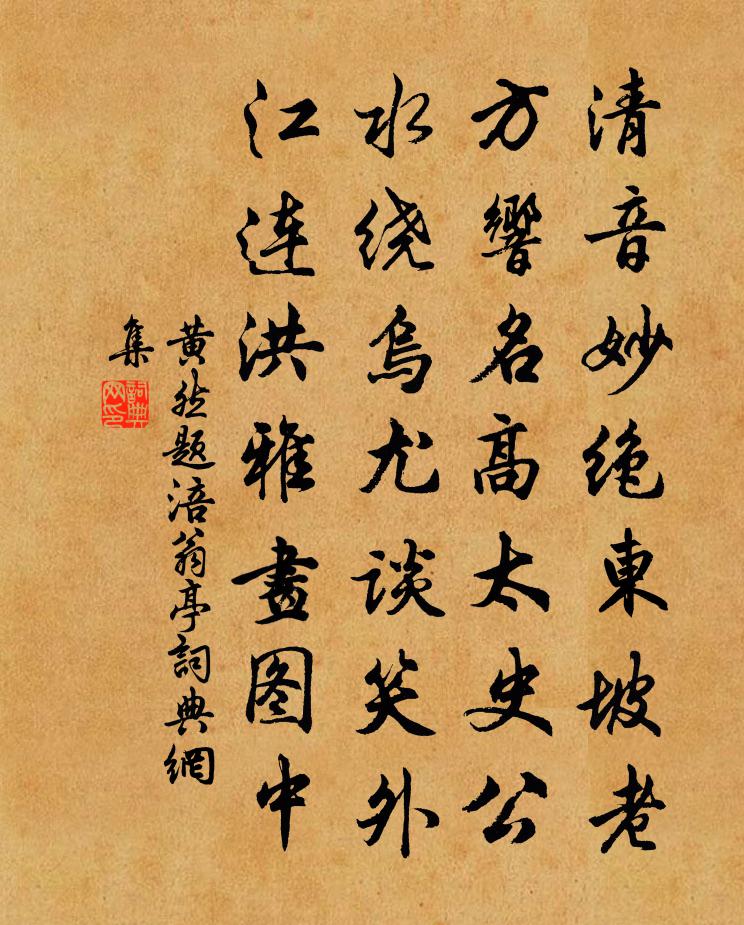 清音妙絶東坡老
方響名高太史公
水绕烏尤談笑外
江连洪雅畫图中
黄然题涪翁亭詞典網
集
詞典网印